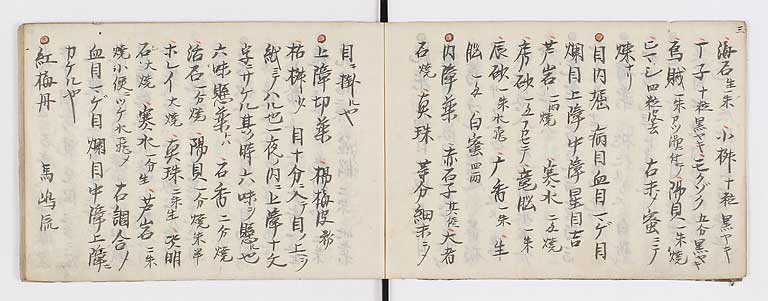 三
海石 生 一朱 小梛 十粒 黒ヤキ
丁子 十粒 黒ヤキ モノゾク 五分 黒ヤキ
烏賊 一朱 陽貝 一朱 焼
四粒 皮去 右末ノ蜜ニテ
煉リ
目内堀 病目血目ツゲ目
爛目上障中障星目ニ吉
芦岩 一両 焼 寒水 二匁 焼
唐砂 竜脳 一朱
辰砂 一朱 水飛 广香 一朱 生
脳 一匁 白蜜 四両
内障薬 赤石子 大者
石 焼 真珠 等分細末ニシ
目ニ掛ルヤ
上障切薬 楊梅皮 粉
枯梛 少 目十分ニ入ヲ目ノ上ヲ
紙ニテハル也一夜ノ内ニ上障十文
字ニサケル其ノ時六味ヲ懸ル也
六味懸薬ハ 石香 二分 焼
滑石 一分 焼 陽貝 一分 焼 朱半
ホレイ 大焼 真珠 二朱 生 天明
石 大焼 寒水 一分 生 芦岩 二朱
焼小便ニツケ水飛ノ 右調合ノ
血目ツゲ目爛目中障上障ニ
カケルヤ
紅梅丹 馬嶋流